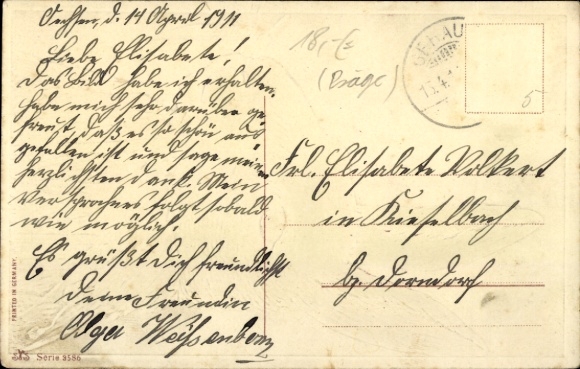 Oechsen, d. 14 April 1911
Liebe Elisabete!
Das Bild habe ich erhalten.
Habe mich sehr darüber ge-
freut, daß es so schön aus
gefallen ist und sage meinen
herzlichsten Dank. Mein
versprochnes folgt sobald
wie möglich.
Es grüßt Dich freundlichst
Deine Freundin
Olga Weißenborn
18,-€
(Präge)
GEHAU
15.4.
5
Frl. Elisabete Volkert
in Kieselbach
bg. Dorndorf
PRINTED IN GERMANY
Serie 3586